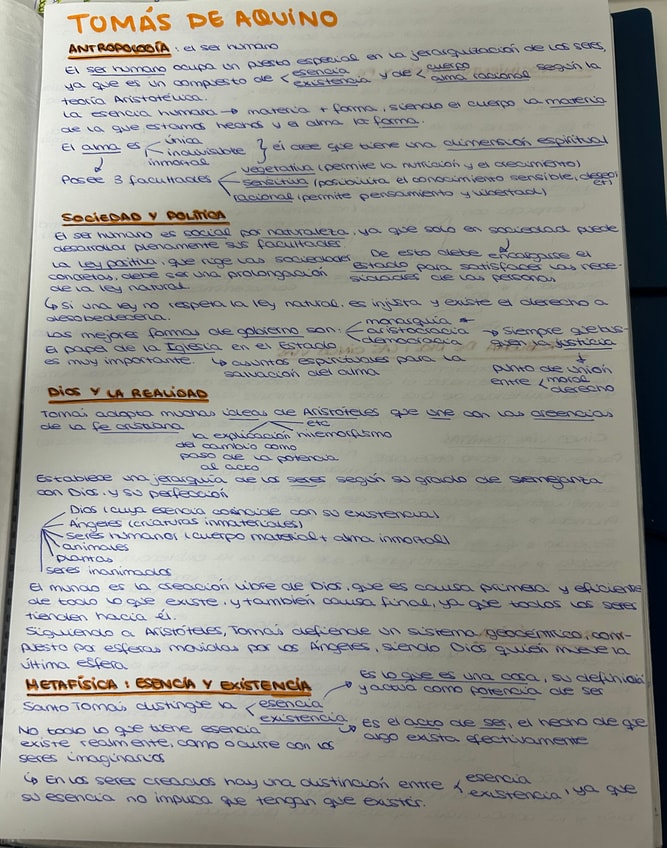 TOMÁS DE AQUINO
ANTROPOLOGÍA : el ser humano
El ser humano ocupa un puesto especial en la jerarquitización de los seres,
ya que es un compuesto de < esencia existencia y de < cuerpo alma racional según la
teoría Aristotélica.
La esencia humana → materia + forma, siendo el cuerpo la materia
de la que estamos hechos y el alma la forma.
El alma es < única indivisible inmortal } él cree que tiene una dimensión espiritual
Posee 3 facultades < vegetativa (permite la nutrición y el crecimiento)
sensitiva (posibilita el conocimiento sensible, deseo, etc)
racional (permite pensamiento y libertad)
SOCIEDAD Y POLÍTICA
El ser humano es social por naturaleza, ya que solo en sociedad puede
desarrollar plenamente sus facultades
La ley positiva, que rige las sociedades
concretas, debe ser una prolongación
de la ley natural
De esto debe encargarse el
Estado para satisfacer las nece-
sidades de las personas
↳ Si una ley no respeta la ley natural, es injusta y existe el derecho a
desobedecerla.
Las mejores formas de gobierno son: < monarquía aristocracia democracia → siempre que bus-
quen la justicia
↓
punto de unión
entre < moral derecho
El papel de la Iglesia en el Estado
es muy importante. ↳ asuntos espirituales para la
salvación del alma
DIOS Y LA REALIDAD
Tomás adapta muchas ideas de Aristóteles que une con las creencias
de la fe cristiana
etc
hilemorfismo
la explicación
del cambio como
paso de la potencia
al acto
Establece una jerarquía de los seres según su grado de semejanza
con Dios, y su perfección
Dios (cuya esencia coincide con su existencia)
Ángeles (criaturas inmateriales)
Seres humanos (cuerpo material + alma inmortal)
animales
plantas
seres inanimados
El mundo es la creación libre de Dios, que es causa primera y eficiente
de todo lo que existe, y también causa final, ya que todos los seres
tienden hacia él.
Siguiendo a Aristóteles, Tomás defiende un sistema geocéntrico, com-
puesto por esferas movidas por los Ángeles, siendo Dios quién mueve la
última esfera.
METAFÍSICA : ESENCIA Y EXISTENCIA
Santo Tomás distingue la < esencia existencia
Es lo que es una cosa, su definición
y actúa como potencia de ser
Es el acto de ser, el hecho de que
algo exista efectivamente
No todo lo que tiene esencia
existe realmente, como ocurre con los
seres imaginarios
↳ En los seres creados hay una distinción entre < esencia existencia, ya que
su esencia no implica que tengan que existir.